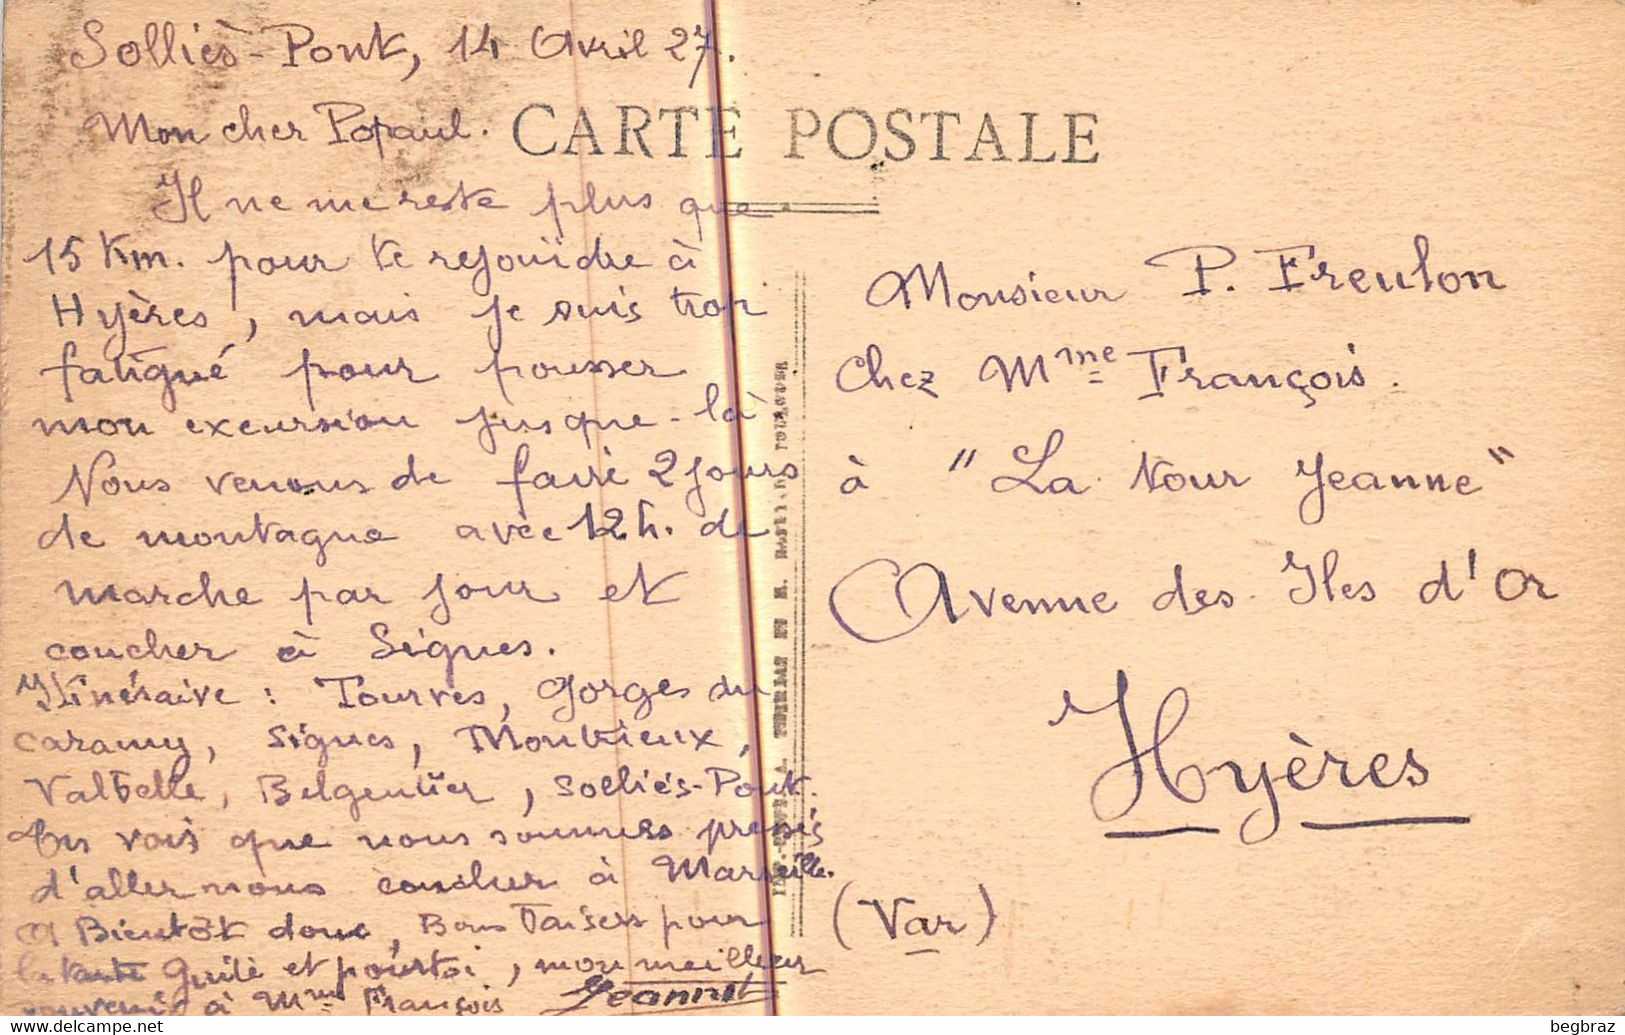 Solliès-Pont, 14 Avril 27.
Mon cher Popaul.
CARTE POSTALE
Il ne me reste plus que
15 Km. pour te rejoindre à
Hyères, mais je suis trop
fatigué pour pousser
mon excursion jusque-là
Nous venons de faire 2 jours
de montagne avec 12 h. de
marche par jour et
coucher à Signes.
Itinéraire : Tourves, Gorges du
Caramy, Signes, Montrieux,
Valbelle, Belgentier, Solliès-Pont.
Tu vois que nous sommes pressés
d'aller nous coucher à Marseille.
A Bientôt donc, Bons Baisers pour
la tante et pour toi, mon meilleur
souvenir à Mme François Jeannot
Monsieur P. Freulon
Chez Mme François.
à "La Tour Jeanne"
Avenue des Iles d'Or
Hyères
(Var)
begbraz
www.delcampe.net